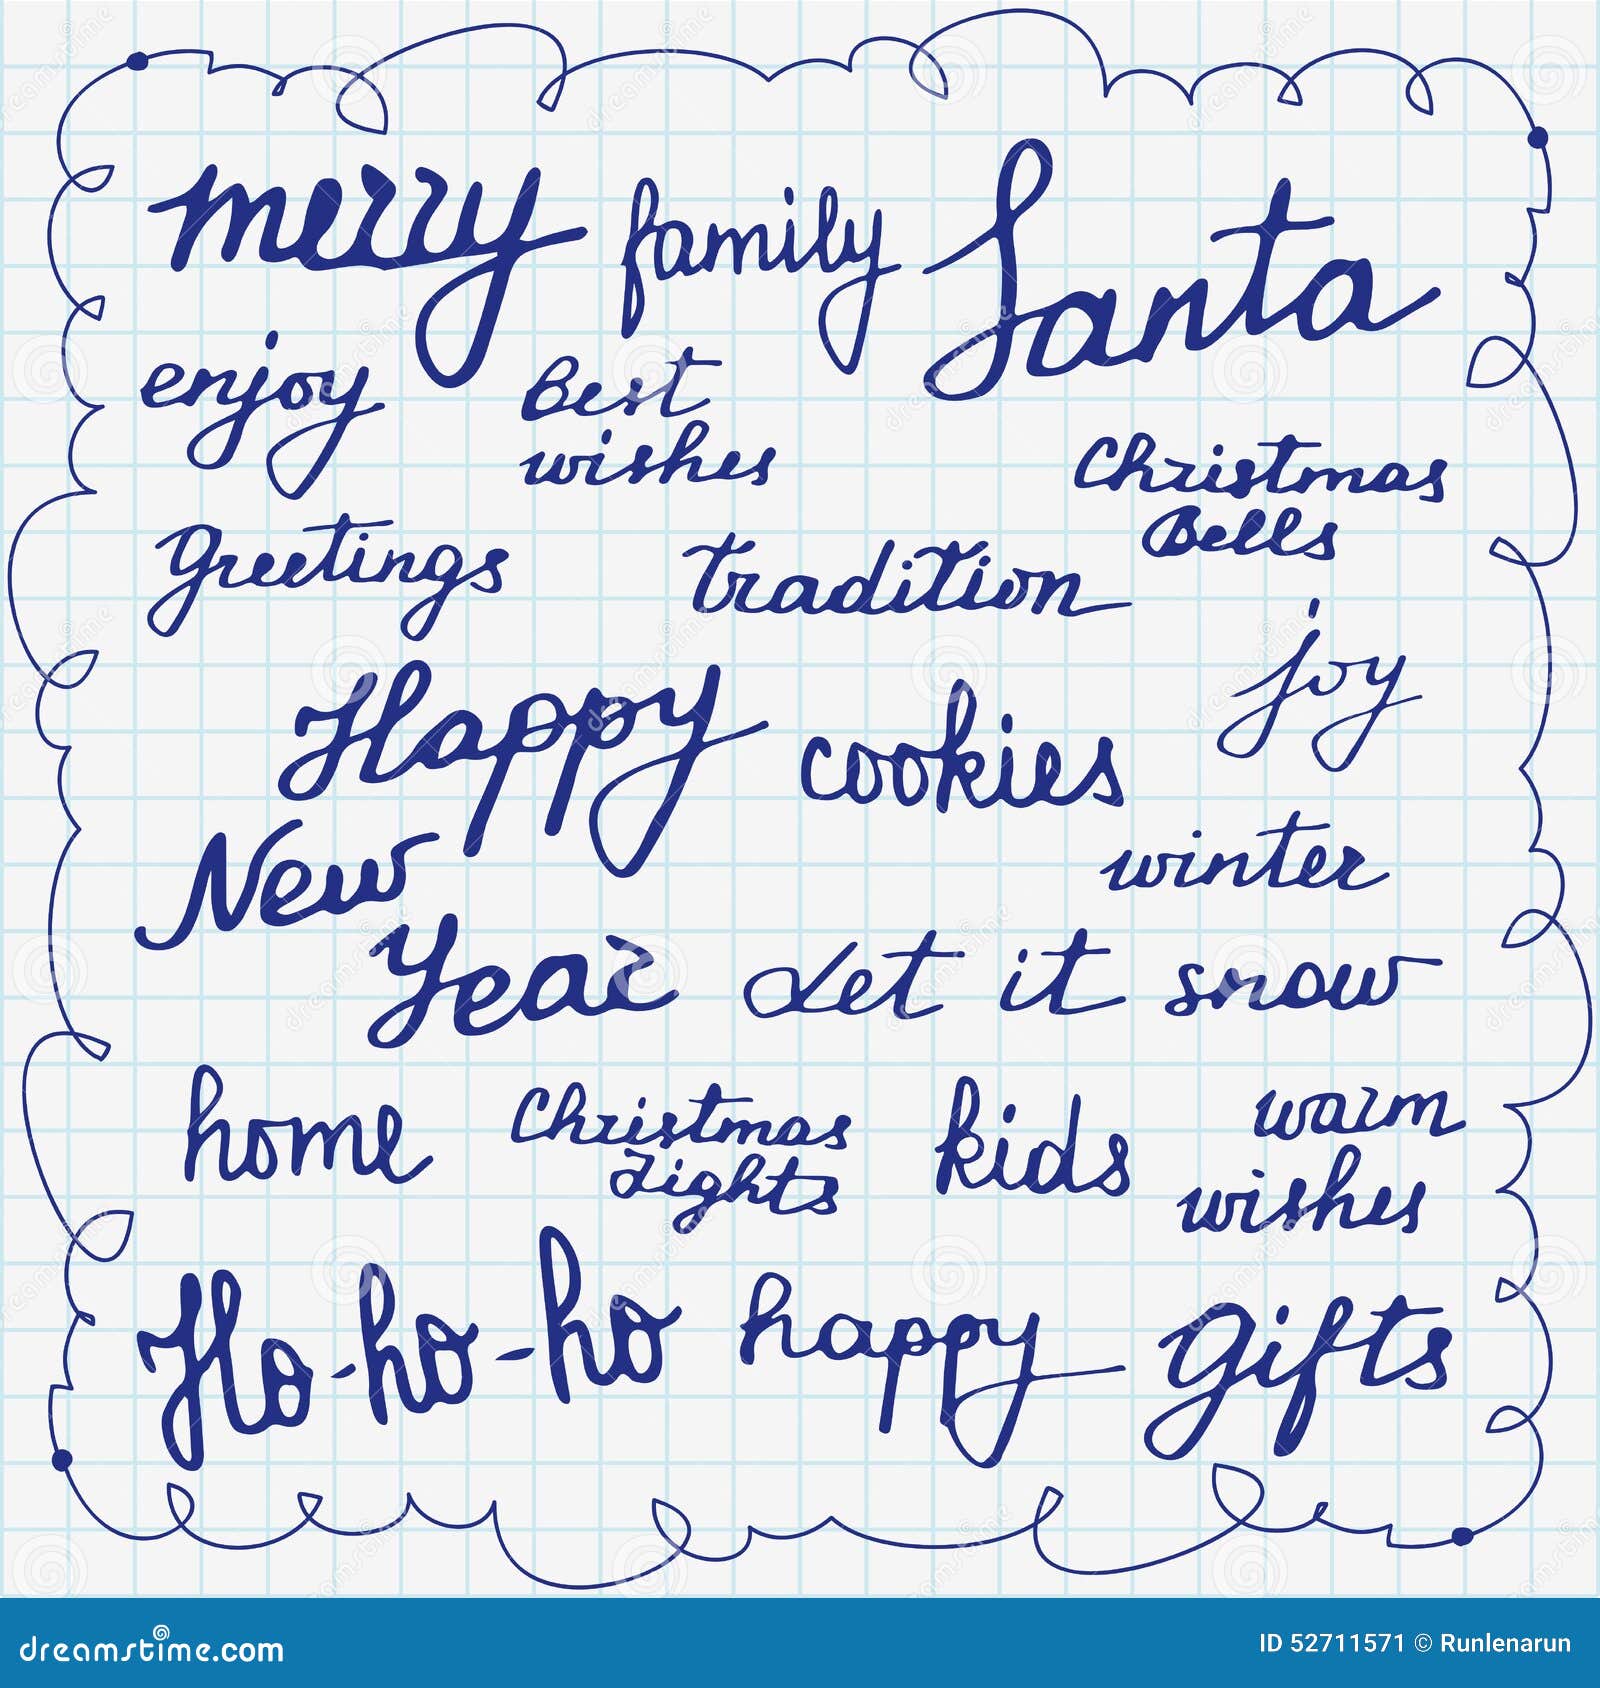 merry family Santa
enjoy Best
wishes
Christmas
Bells
Greetings tradition
joy
Happy cookies
New winter
Year Let it snow
home Christmas
Lights
kids warm
wishes
Ho-ho-ho happy Gifts
dreamstime.com
ID 52711571 © Runlenarun